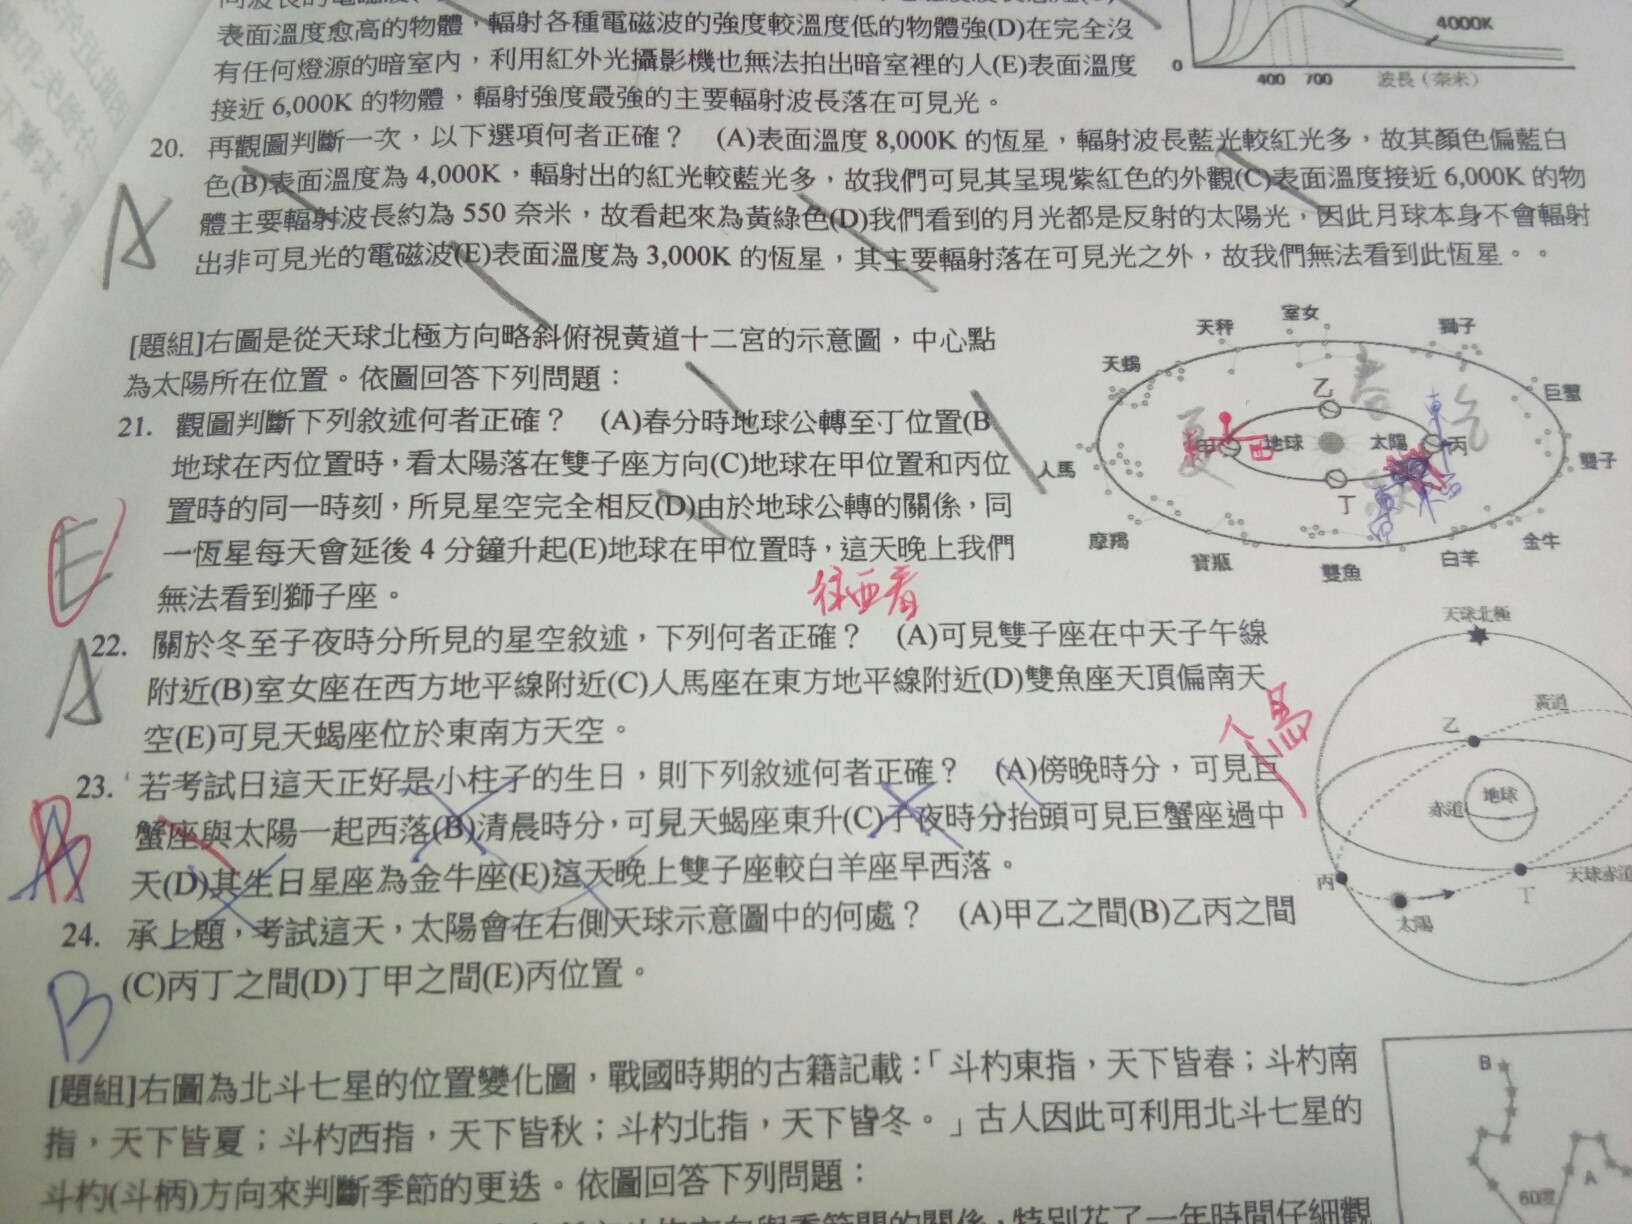 表面溫度愈高的物體，輻射各種電磁波的強度較溫度低的物體強(D)在完全沒
有任何燈源的暗室內，利用紅外光攝影機也無法拍出暗室裡的人(E)表面溫度
接近 6,000K 的物體，輻射強度最強的主要輻射波長落在可見光。
4000K
0
400 700 波長（奈米）
20. 再觀圖判斷一次，以下選項何者正確？ (A)表面溫度 8,000K 的恆星，輻射波長藍光較紅光多，故其顏色偏藍白
色(B)表面溫度為 4,000K，輻射出的紅光較藍光多，故我們可見其呈現紫紅色的外觀(C)表面溫度接近 6,000K 的物
體主要輻射波長約為 550 奈米，故看起來為黃綠色(D)我們看到的月光都是反射的太陽光，因此月球本身不會輻射
出非可見光的電磁波(E)表面溫度為 3,000K 的恆星，其主要輻射落在可見光之外，故我們無法看到此恆星。。
A
[題組]右圖是從天球北極方向略斜俯視黃道十二宮的示意圖，中心點
為太陽所在位置。依圖回答下列問題：
21. 觀圖判斷下列敘述何者正確？ (A)春分時地球公轉至丁位置(B
地球在丙位置時，看太陽落在雙子座方向(C)地球在甲位置和丙位
置時的同一時刻，所見星空完全相反(D)由於地球公轉的關係，同
一恆星每天會延後 4 分鐘升起(E)地球在甲位置時，這天晚上我們
無法看到獅子座。
E
往西看
室女
天秤
獅子
天蝎
巨蟹
乙
春
夏
甲
西
地球
太陽
丙
東
人馬
雙子
丁
摩羯
寶瓶
雙魚
白羊
金牛
22. 關於冬至子夜時分所見的星空敘述，下列何者正確？ (A)可見雙子座在中天子午線
附近(B)室女座在西方地平線附近(C)人馬座在東方地平線附近(D)雙魚座天頂偏南天
空(E)可見天蠍座位於東南方天空。
A
人馬
23. 若考試日這天正好是小柱子的生日，則下列敘述何者正確？ (A)傍晚時分，可見巨
蟹座與太陽一起西落(B)清晨時分，可見天蠍座東升(C)子夜時分抬頭可見巨蟹座過中
天(D)其生日星座為金牛座(E)這天晚上雙子座較白羊座早西落。
24. 承上題，考試這天，太陽會在右側天球示意圖中的何處？ (A)甲乙之間(B)乙丙之間
(C)丙丁之間(D)丁甲之間(E)丙位置。
B
天球北極
黃道
乙
地球
赤道
丙
丁
天球赤道
太陽
[題組]右圖為北斗七星的位置變化圖，戰國時期的古籍記載：「斗杓東指，天下皆春；斗杓南
指，天下皆夏；斗杓西指，天下皆秋；斗杓北指，天下皆冬。」古人因此可利用北斗七星的
斗杓(斗柄)方向來判斷季節的更迭。依圖回答下列問題：
B
A
60度